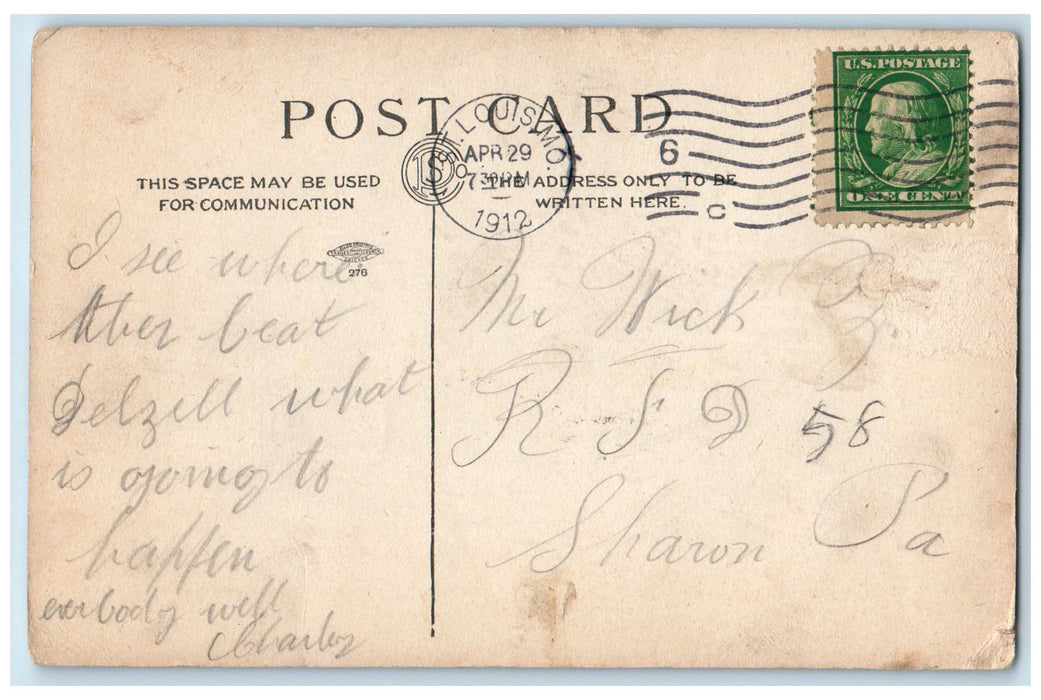 U.S. POSTAGE
POST CARD
ST. LOUIS, MO.
APR 29
7 30 PM
1912
6
C
ONE CENT
THIS SPACE MAY BE USED
FOR COMMUNICATION
THE ADDRESS ONLY TO BE
WRITTEN HERE.
276
I see where
beat
Delzell what
is going to
happen
everbody well
Charley
Mr Wick
R F D 58
Sharon Pa